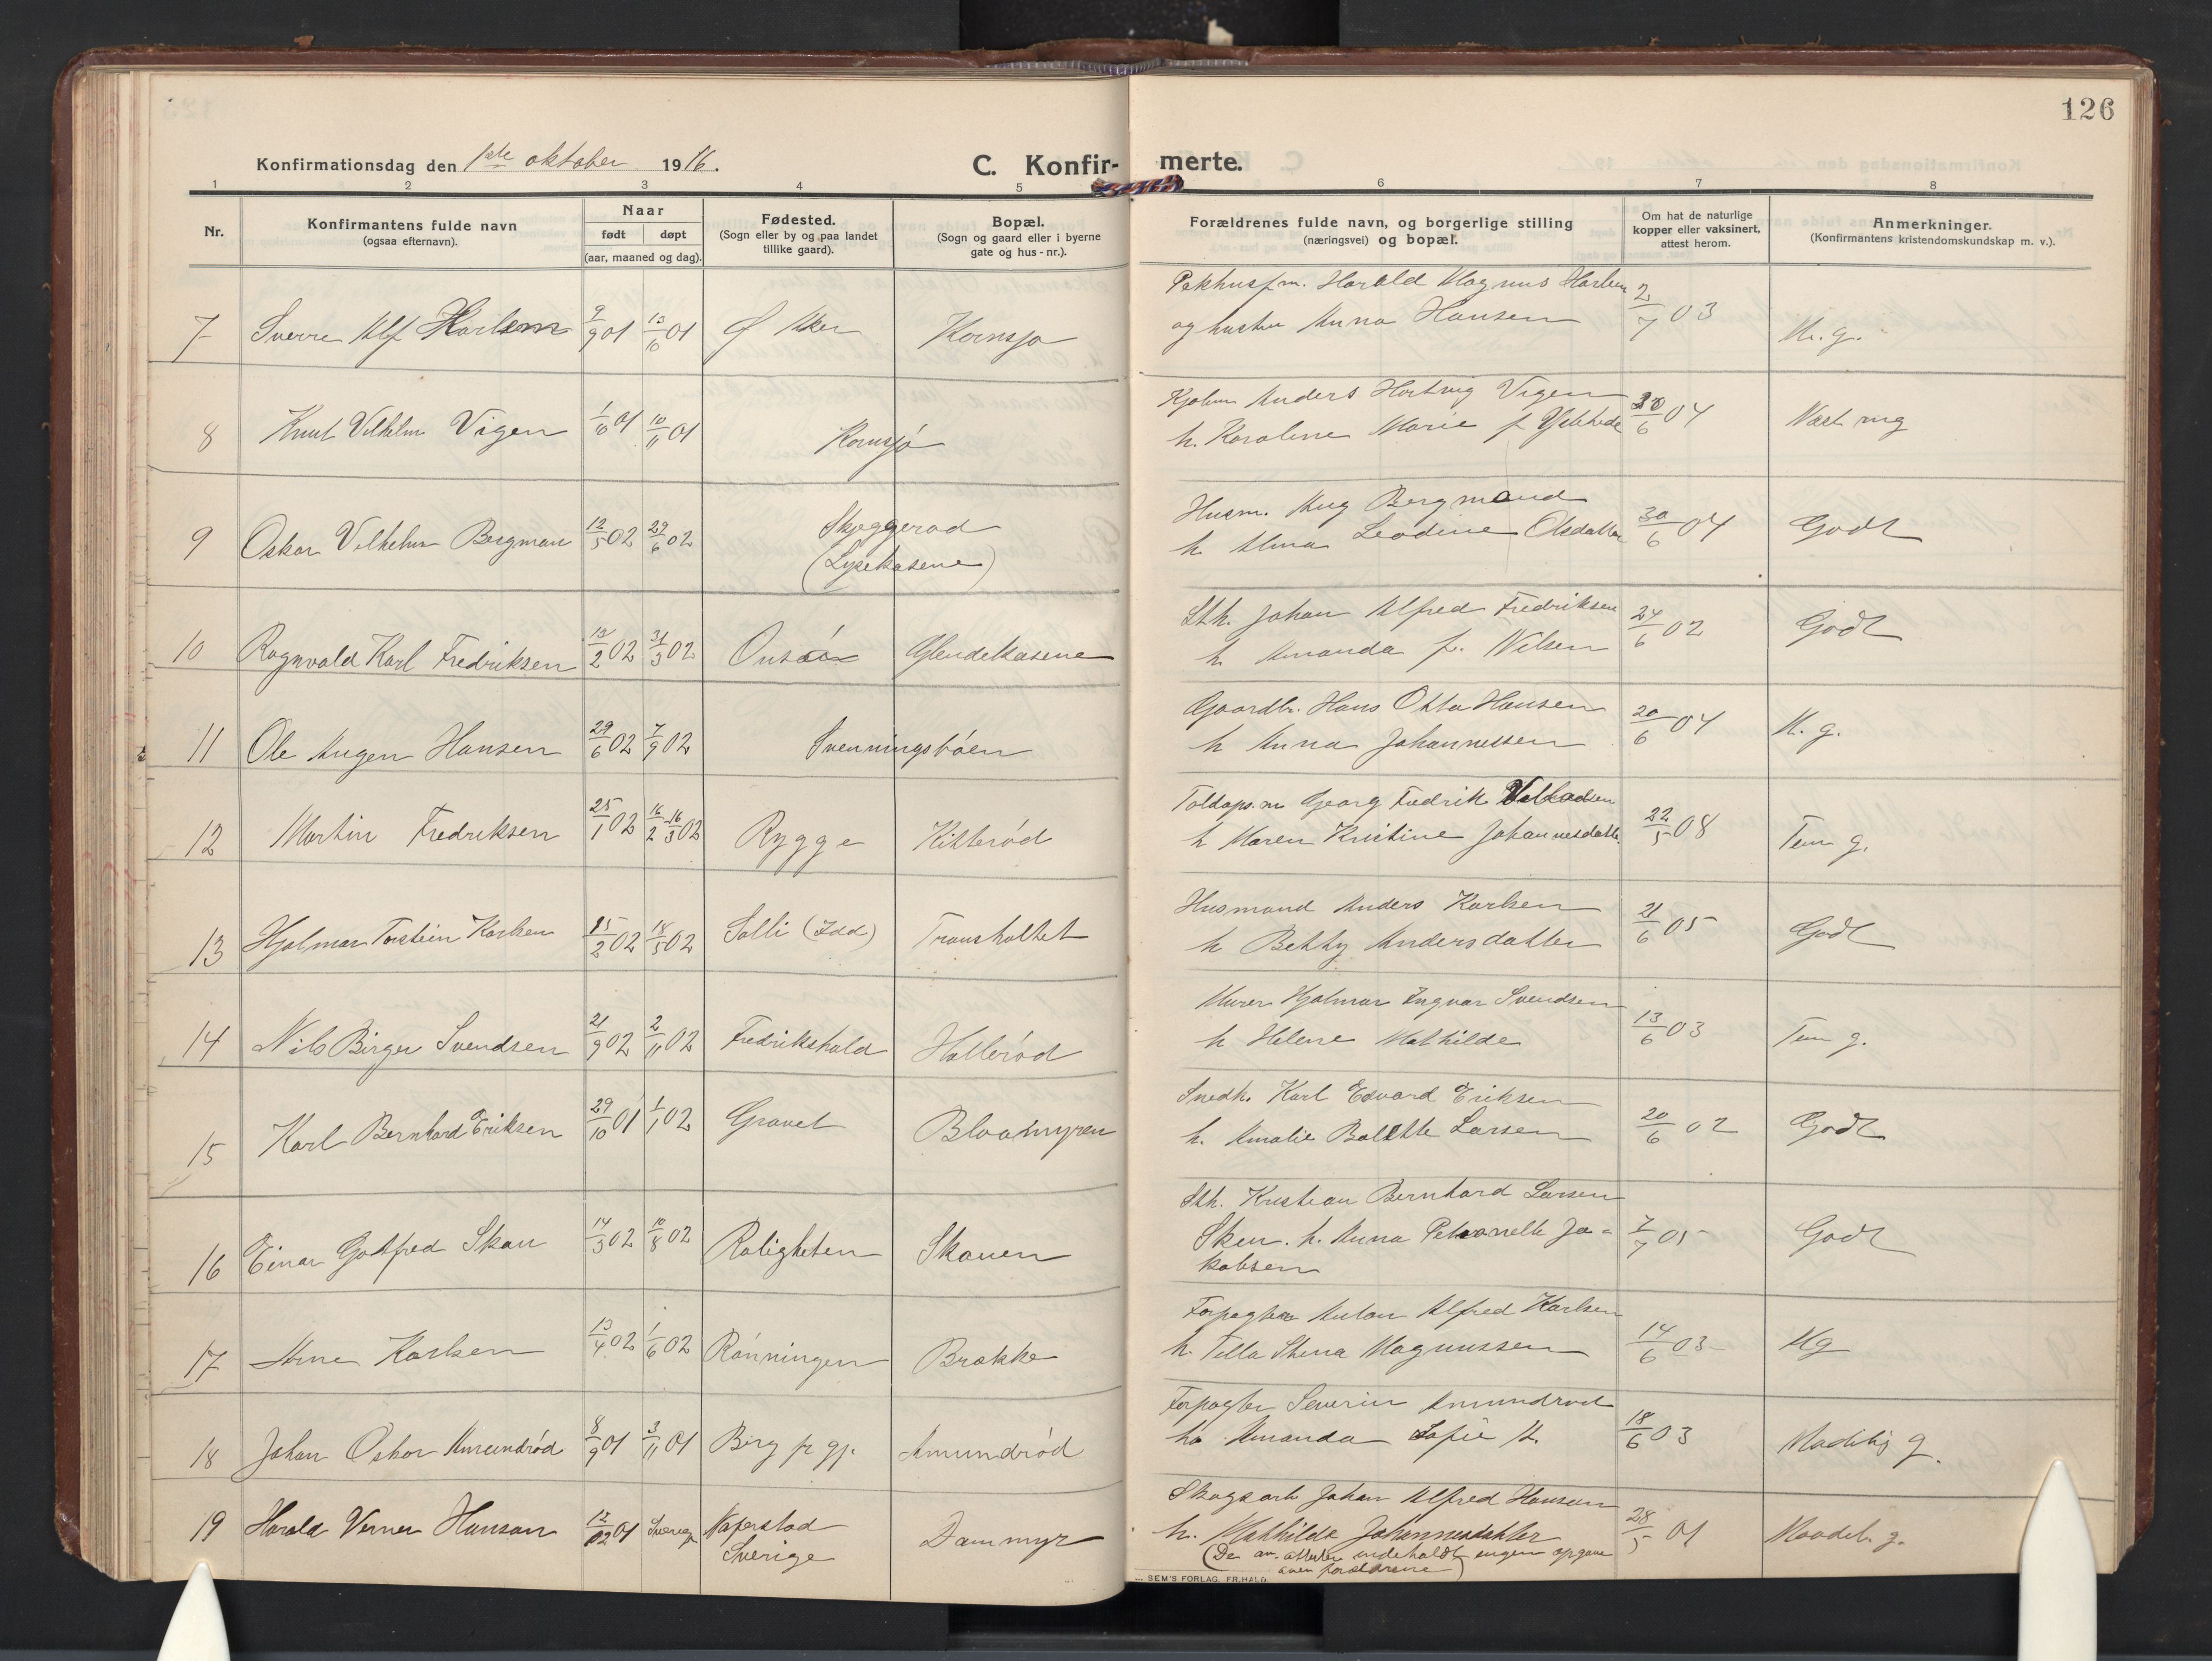 126
Konfirmationsdag den 1ste oktober 1916.
C. Konfir-
merte.
1 2 3 4 5 6 7 8
Nr.
Konfirmantens fulde navn
(ogsaa efternavn).
Naar
født døpt
(aar, maaned og dag).
Fødested.
(Sogn eller by og paa landet
tillike gaard).
Bopæl.
(Sogn og gaard eller i byerne
gate og hus-nr.).
Forældrenes fulde navn, og borgerlige stilling
(næringsvei) og bopæl.
Om hat de naturlige
kopper eller vaksinert,
attest herom.
Anmerkninger.
(Konfirmantens kristendomskundskap m. v.).
7 Sverre Alf Karlsen 9/9 01 13/10 01 Ø Aker Kornsjø
Pakhusfm. Harald Magnus Karlsen
og hustru Anna Hansen
2/7 03
M. g.
8 Knut Vilhelm Vigen 1/10 01 10/11 01 Kornsjø
Anders Hartvig Vigen
h. Karoline Marie f.
30/6 04
9 Oskar Vilhelm Bergman 12/5 02 29/6 02 Skjeggerød
(Lysekasene)
Husm. Aug Bergmand
h Alma Leodine Olsdatter
30/6 04
Godt
10 Ragnvald Karl Fredriksen 13/2 02 31/3 02 Onsøe Glendekasene
Sth. Johan Alfred Fredriksen
h Amanda f. Nilsen
24/6 02
Godt
11 Ole Augen Hansen 29/6 02 7/9 02 Svenningsbøen
Gaardbr. Hans Otto Hansen
h Anna Johannessen
20/6 04
M. g.
12 Martin Fredriksen 25/1 02 16/2 - 16/3 02 Rygge Kitterød
Toldops.m Georg Fredrik
h Maren Kristine Johannesdatter
22/5 08
Tem g.
13 Hjalmar Torstein Karlsen 15/2 02 18/5 02 Solli (Idd) Transholtet
Husmand Anders Karlsen
h Betty Andersdatter
21/6 05
Godt
14 Nils Birger Svendsen 21/9 02 2/11 02 Fredrikshald Hallerød
Murer Hjalmar Ingvar Svendsen
h Helene Mathilde
13/6 03
Tem g.
15 Karl Bernhard Eriksen 29/10 01 1/1 02 Gravel Blaamyren
Snedk. Karl Edvard Eriksen
h. Amalie Bolette Larsen
20/6 02
Godt
16 Einar Gotfred Skau 14/3 02 10/8 02 Roligheten Skauen
Sth. Kristian Bernhard Larsen
Skau. h. Anna Petronelle Ja-
kobsen
7/7 05
Godt
17 Arne Karlsen 13/4 02 1/6 02 Rønningen Brække
Forpagter Anton Alfred Karlsen
h. Tilla Stena Magnussen
14/6 03
Mg
18 Johan Oskar Amundrød 8/9 01 3/11 01 Berg pr gj. Amundrød
Forpagter Severin Amundrød
h. Amanda Sofie A.
18/6 03
Maadelig g.
19 Harald Verner Hansan 12/12 01 Sverige Naverstad
Sverige
Dammyr
Skogsarb Johan Alfred Hansan
h. Mathilde Johannesdatter
(De an. attester indeholdt ingen opgave
over forældrene)
28/5 01
Maadel. g.
SEM'S FORLAG, FR.HALD